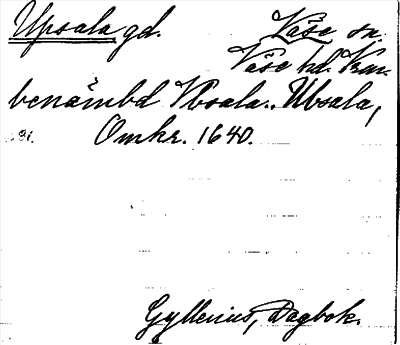 Upsala gd. Väse sn.
Väse hd. Krm.
benämbd Vbsala.. Ubsala,
Omkr. 1640.
Gyllenius, Dagbok.